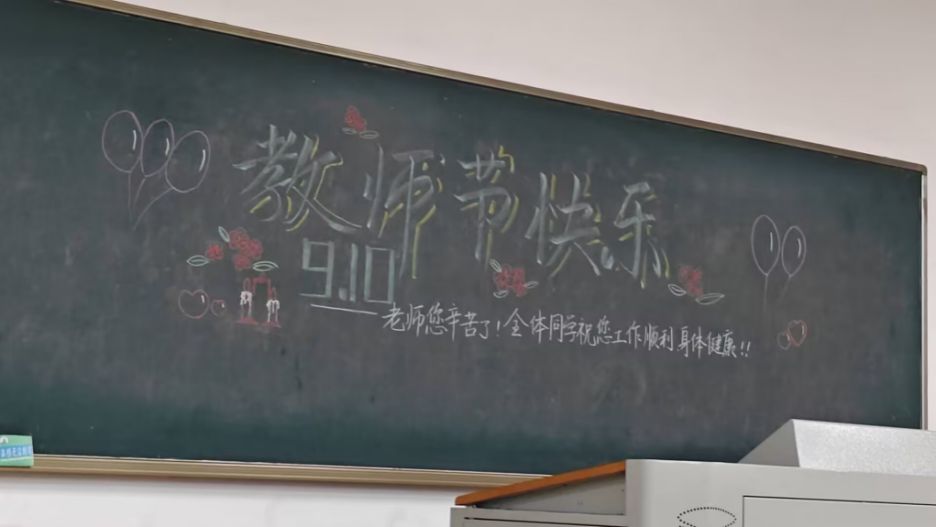 教师节快乐
9.10
老师您辛苦了！全体同学祝您工作顺利身体健康！！